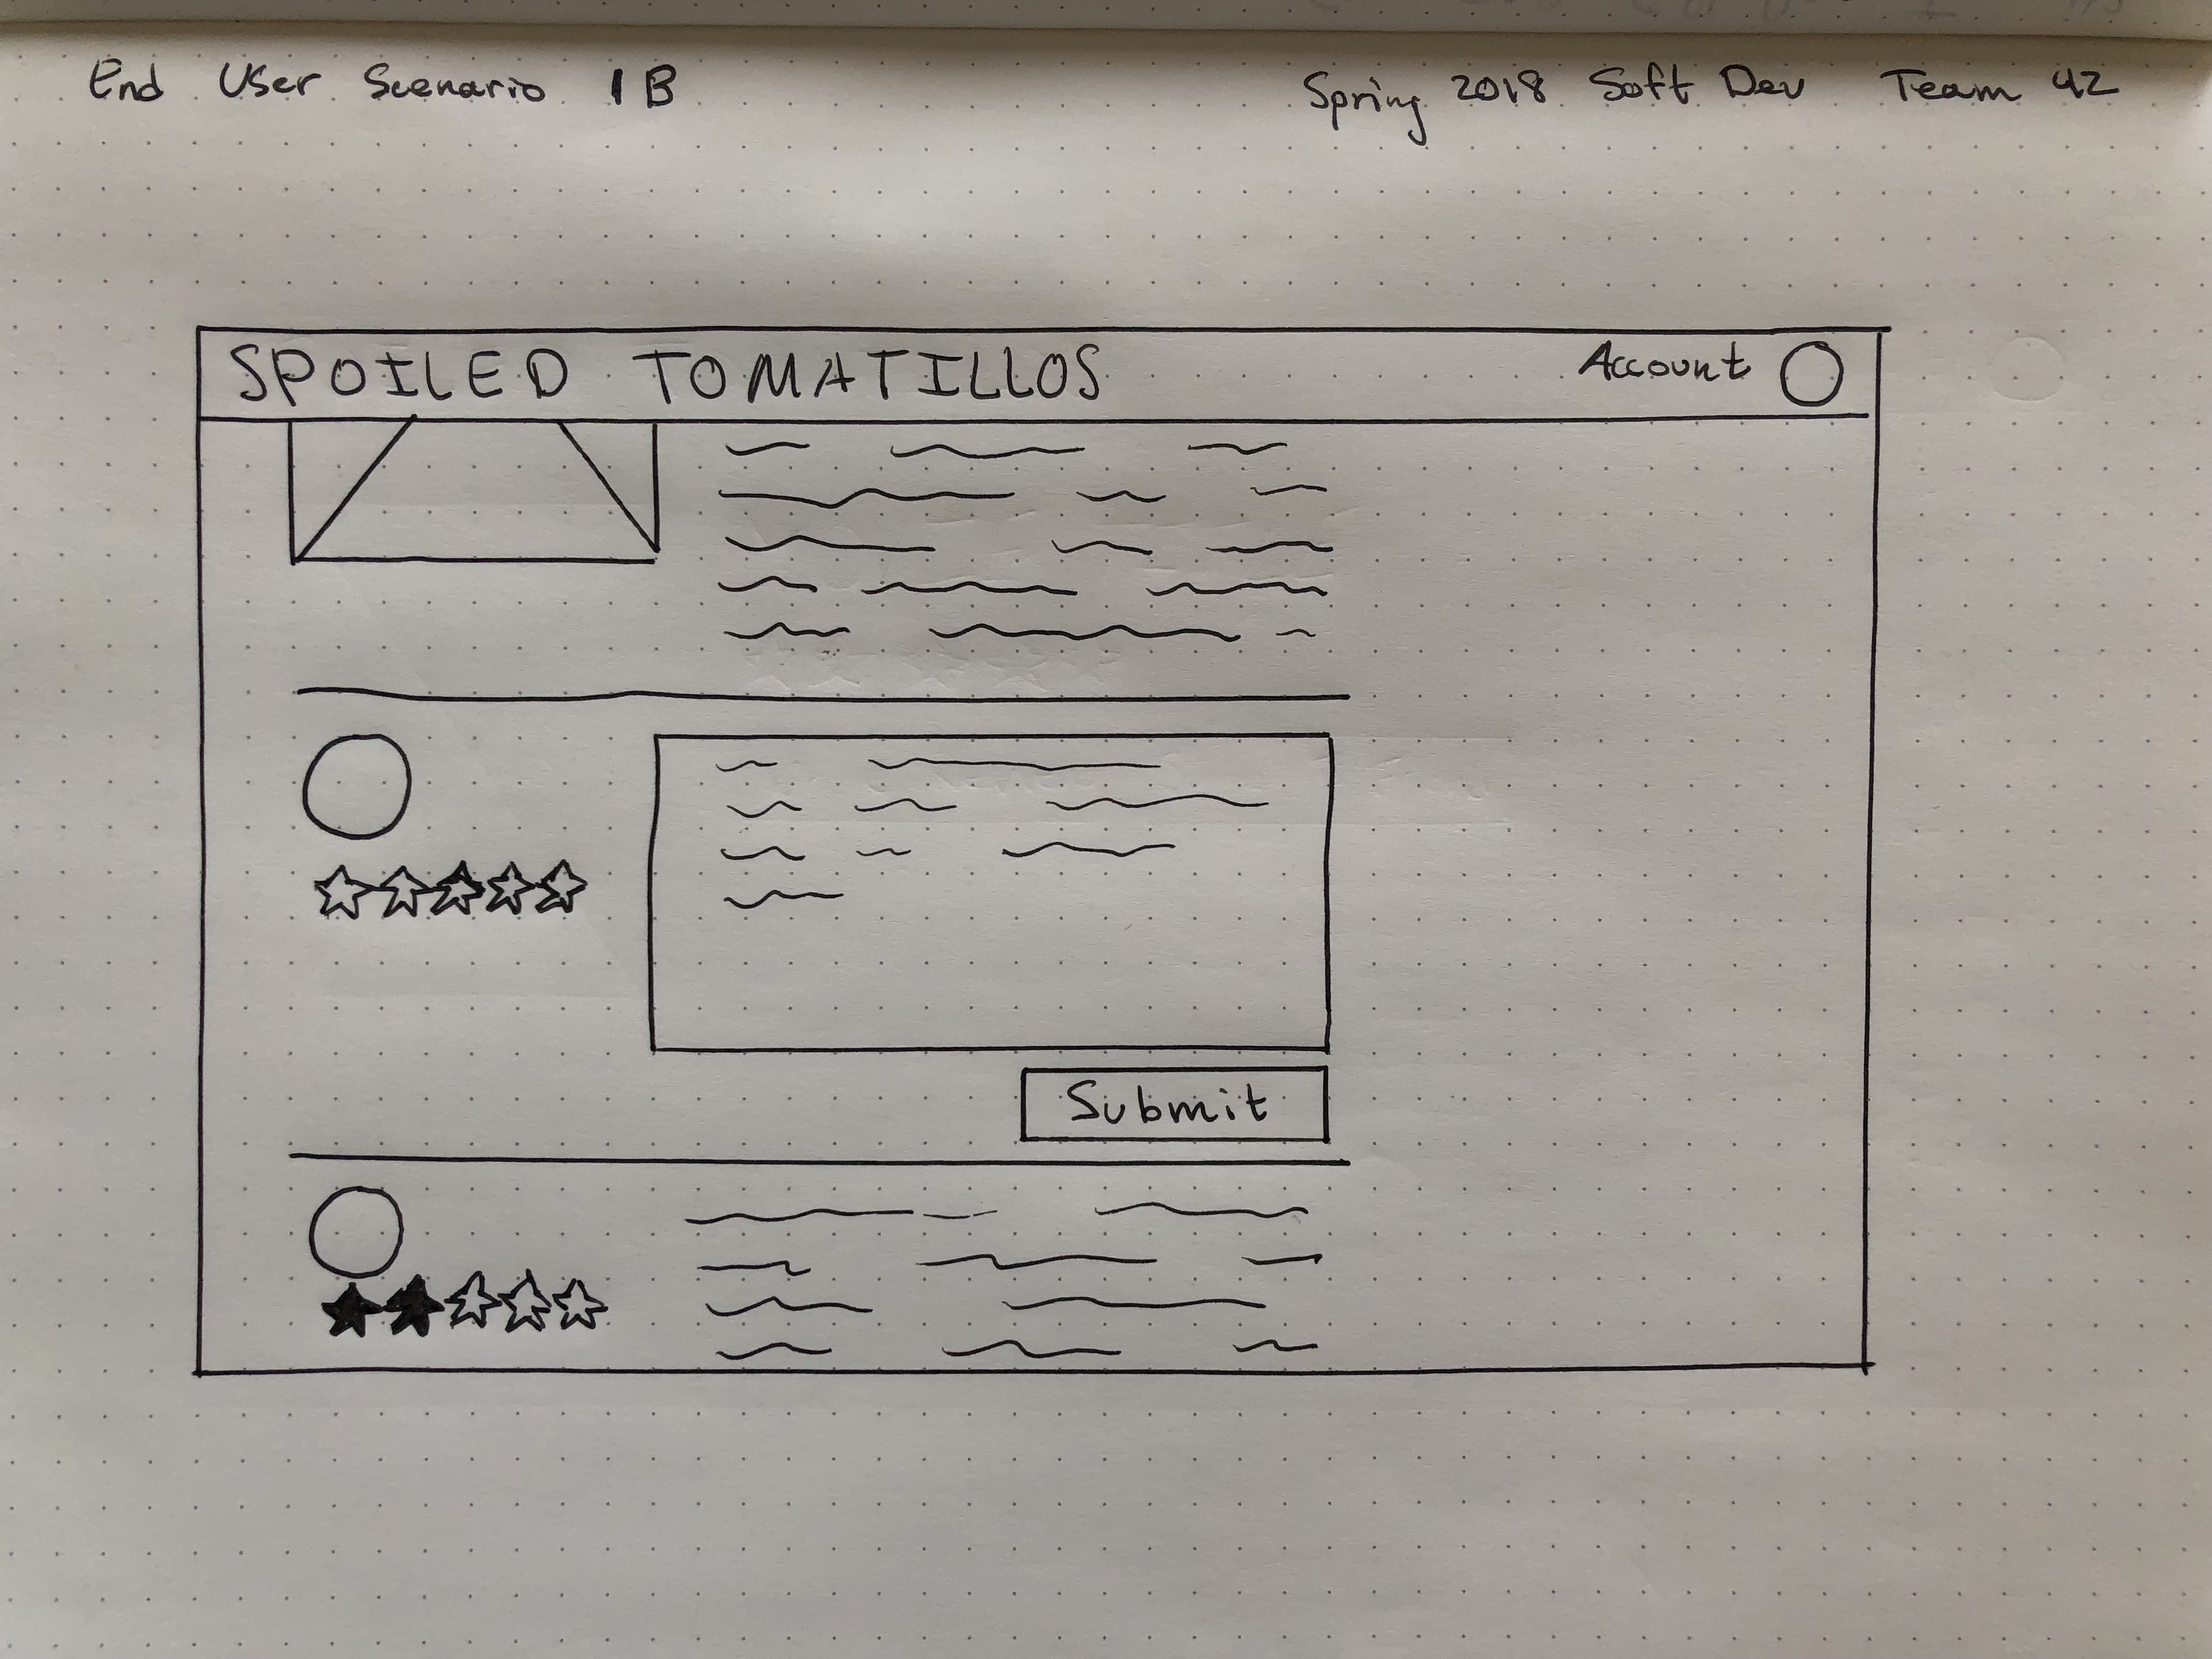 End User Scenario 1B
Spring 2018 Soft Dev Team 42
SPOILED TOMATILLOS
Account
Submit